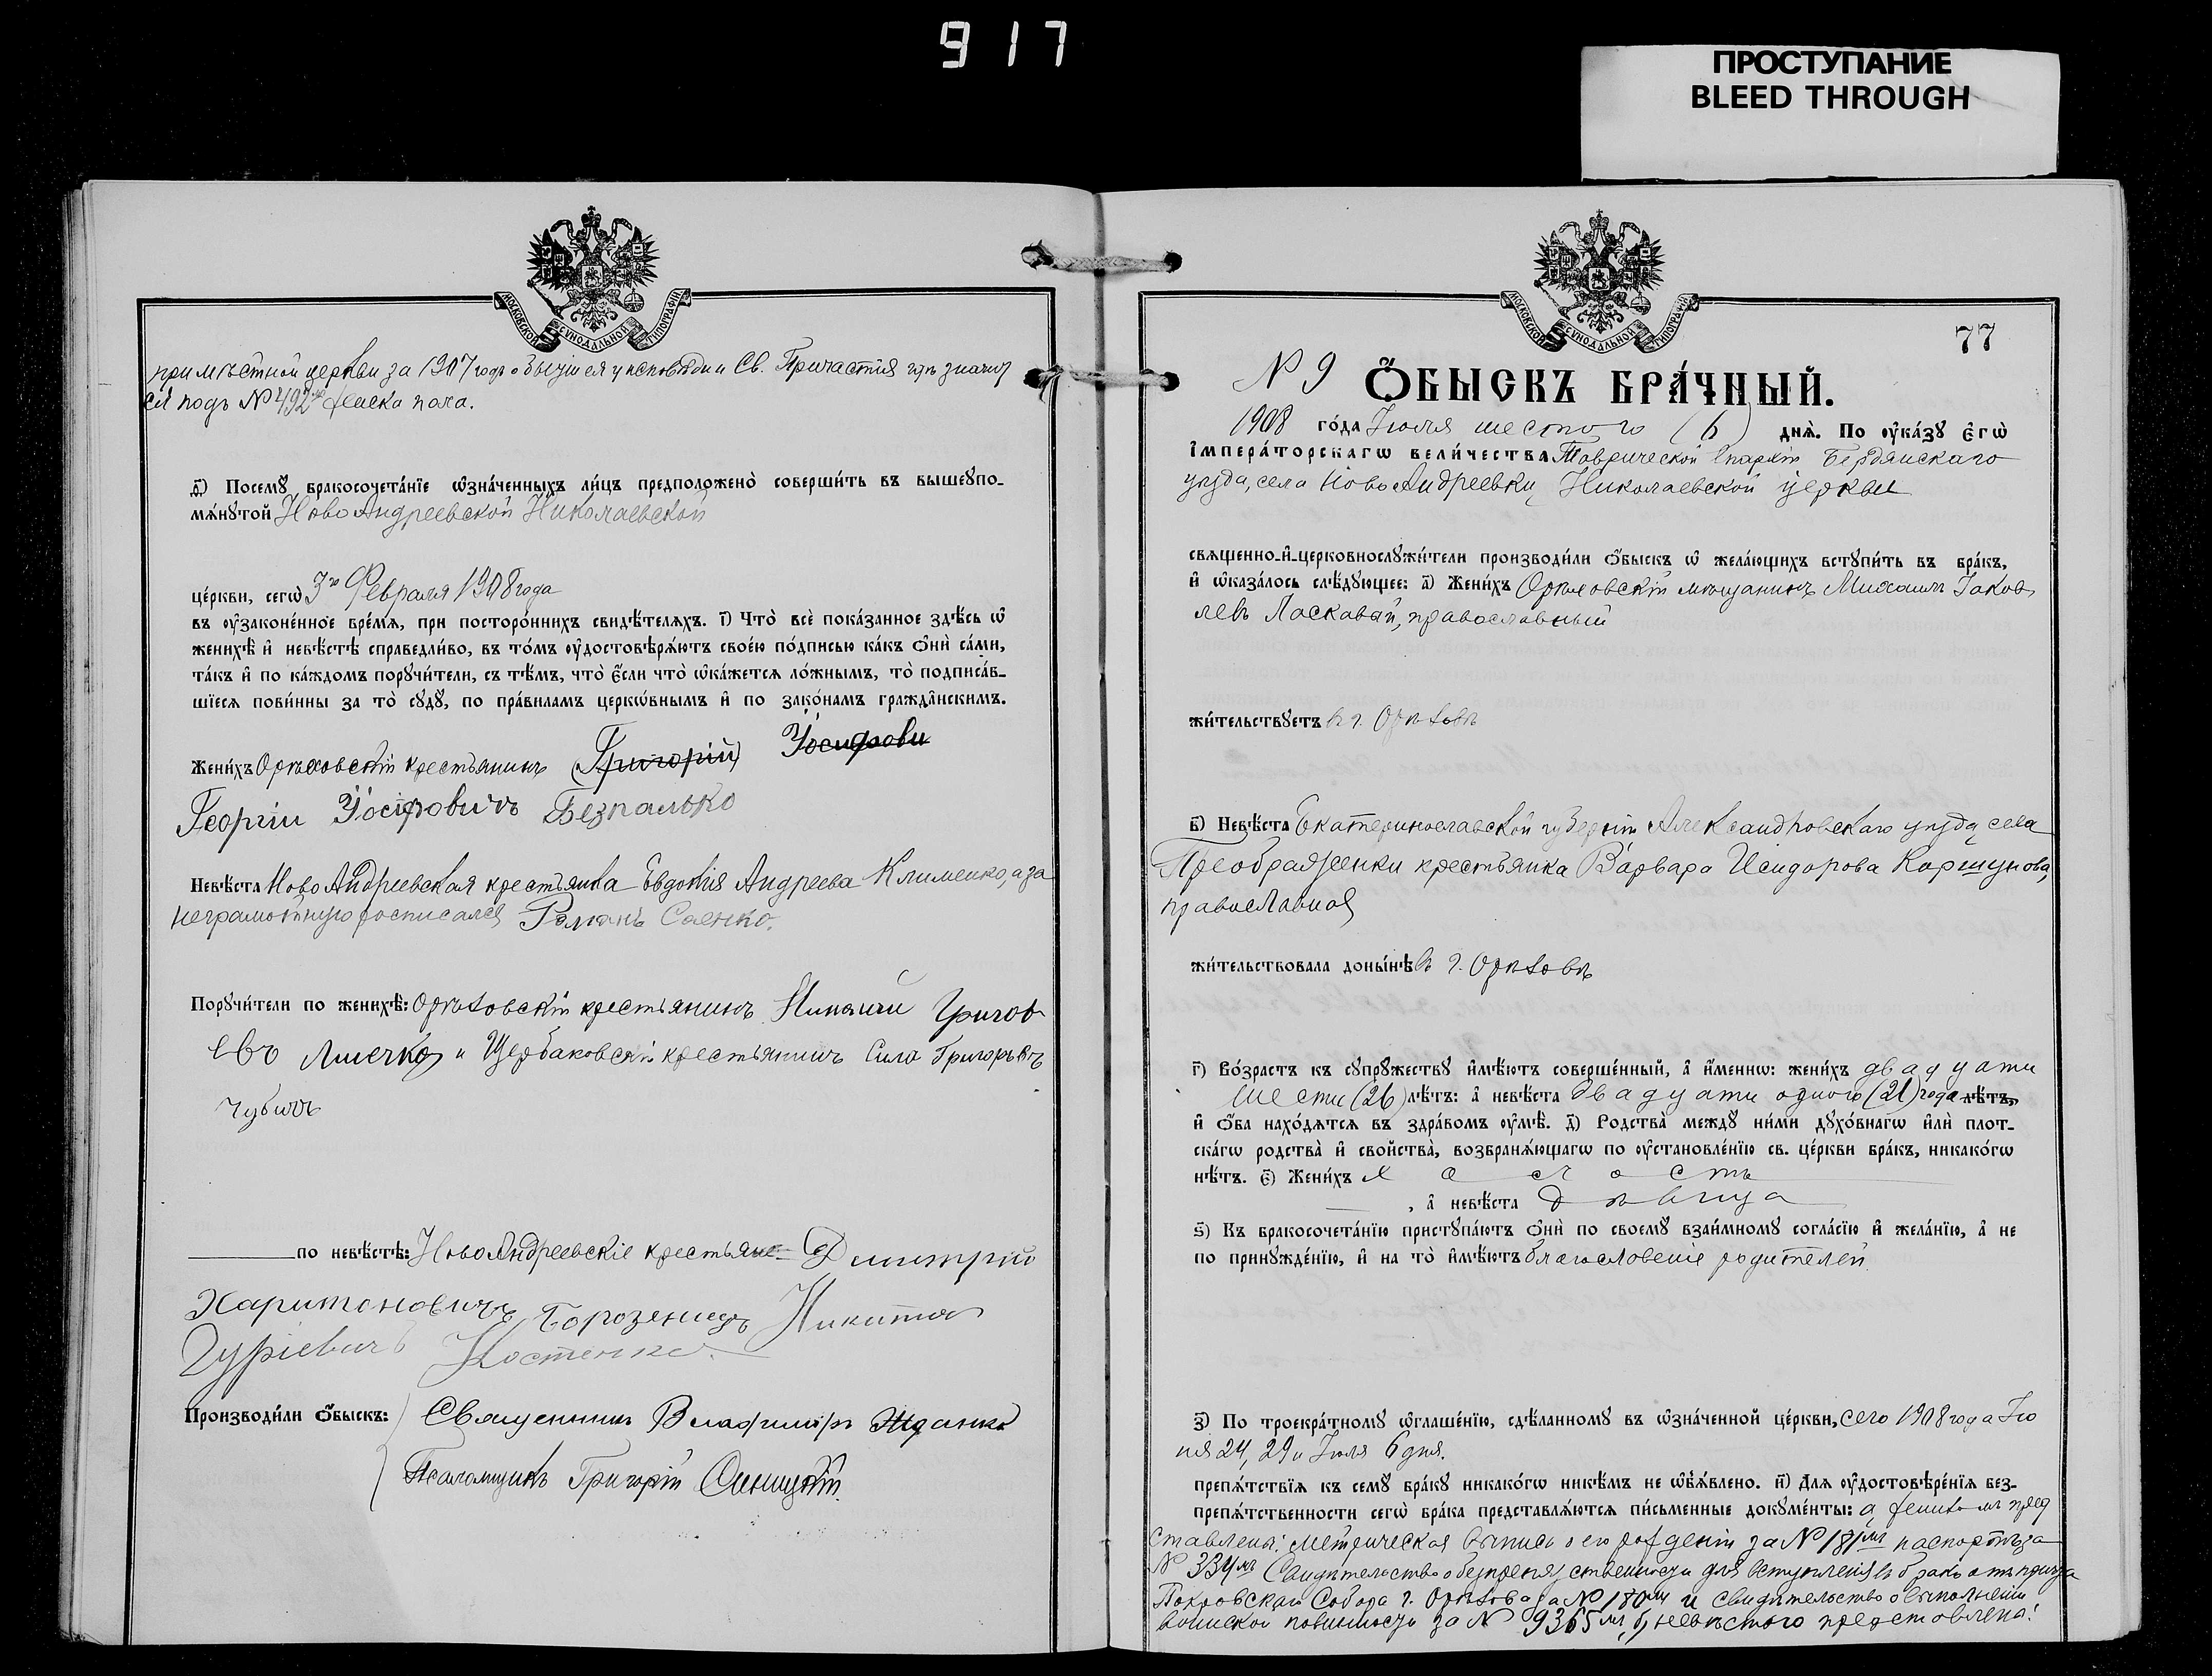 917
ПРОСТУПАНИЕ
BLEED THROUGH
МОСКОВСКОЙ СѴНОДАЛЬНОЙ ТИПОГРАФІИ
при мѣстной церкви за 1907 годъ о бывшихъ у исповѣди и Св. Причастія гдѣ значит
ся подъ № 492 женска пола.
д҃і) Посемꙋ̀ бракосочета́нїе ѡ҆зна́ченныхъ ли́цъ предположено̀ соверши́ть въ вышеꙋпо-
мѧ́нꙋтой Ново Андреевской Николаевской
це́ркви, сегѡ̀ 3го Февраля 1908 года
въ ᲂу҆законе́нное вре́мѧ, при посторо́ннихъ свидѣ́телѧхъ. і҃) Что̀ всѐ пока́занное здѣ́сь ѡ҆
женихѣ̀ и҆ невѣ́стѣ справедли́во, въ то́мъ ᲂу҆достовѣрѧ́ютъ свое́ю по́дписью ка́къ ѻ҆нѝ са́ми,
та́къ и҆ по ка́ждомъ порꙋчи́тели, съ тѣ́мъ, что̀ є҆́сли что̀ ѡ҆ка́жетсѧ ло́жнымъ, то̀ подписа́в-
шїесѧ пови́нны за то̀ сꙋдꙋ̀, по пра́виламъ церкѡ́внымъ и҆ по зако́намъ гражда̑нскимъ.
Жени́хъ Орѣховскій крестьянинъ Григорій Іосифови
Георгій Іосіфовичъ Безпалько
Невѣ́ста Ново Андреевская крестьянка Евдокія Андреева Клименко, а за
неграмотную росписался Романъ Саенко.
Порꙋчи́тели по женихѣ̀: Орѣховскій крестьянинъ Григор
евъ и Щербаковскій крестьянинъ Сила Григорьевъ
Чубичъ
по невѣ́стѣ: Ново Андреевскіе крестьяне Дмитрій
Харитоновичъ Борозенецъ Никита
Гуріевичъ Костенко.
Производи́ли ѻ҆́быскъ: Священникъ Владиміръ Жданко
Псаломщикъ Григорій Синицкій.
МОСКОВСКОЙ СѴНОДАЛЬНОЙ ТИПОГРАФІИ
77
№ 9 Ѻ҆́БЫСКЪ БРА́ЧНЫЙ.
1908 го́да Іюля шестого (6) днѧ̀. По ᲂу҆ка́зꙋ є҆гѡ̀
і҆мпера́торскагѡ вели́чества Таврической Епархіи Бердянскаго
уѣзда, села Ново Андреевки Николаевской церкви
свѧщенно-и҆-церковнослꙋжи́тели производи́ли ѻ҆́быскъ ѡ҆ жела́ющихъ встꙋпи́ть въ бра́къ,
и҆ ѡ҆каза́лось слѣ́дꙋющее: а҃) Жени́хъ Орѣховскій мѣщанинъ Михаилъ Іаков
левъ Ласкавый, православный
жи́тельствꙋетъ въ г. Орѣховѣ
в҃) Невѣ́ста Екатеринославской губерніи Александровскаго уѣзда села
Преображенки крестьянка Варвара Исидорова Коршунова,
православная
жи́тельствовала доны́нѣ въ г. Орѣховѣ
г҃) Во́зрастъ къ сꙋпрꙋ́жествꙋ и҆мѣ́ютъ соверше́нный, а҆ и҆́меннѡ: жени́хъ двадцати
шести (26) лѣ́тъ: а҆ невѣ́ста двадцати одного (21) года лѣ́тъ,
и҆ ѻ҆́ба нахо́дѧтсѧ въ здра́вомъ ᲂу҆мѣ̀. д҃) Родства̀ междꙋ̀ ни́ми дꙋхо́внагѡ и҆лѝ плот-
ска́гѡ родства̀ и҆ сво́йства, возбранѧ́ющагѡ по ᲂу҆становле́нїю св. це́ркви бра́къ, никако́гѡ
нѣ́тъ. є҃) Жени́хъ холостъ
, а҆ невѣ́ста дѣвица
ѕ҃) Къ бракосочета́нїю пристꙋпа́ютъ ѻ҆нѝ по своемꙋ̀ взаи́мномꙋ согла́сїю и҆ жела́нїю, а҆ не
по принꙋжде́нїю, и҆ на то̀ и҆мѣ́ютъ благословеніе родителей.
з҃) По троекра́тномꙋ ѡ҆глаше́нїю, сдѣ́ланномꙋ въ ѡ҆зна́ченной це́ркви, сего 1908 года Ію
ня 24, 29 и Іюля 6 дня.
препѧ́тствїѧ къ семꙋ̀ бра́кꙋ никако́гѡ никѣ́мъ не ѡ҆б̾ѧ́влено. и҃) Длѧ ᲂу҆достовѣре́нїѧ без-
препѧ́тственности сегѡ̀ бра́ка представлѧ́ютсѧ пи́сьменные докꙋме́нты: а, женихомъ пред
ставлены: метрическая выпись о его рожденіи за № 181мъ паспортъ за
№ 334мъ Свидѣтельство о безпрепятственности для вступленія въ бракъ отъ причта
Покровскаго Собора г. Орѣхова за № 180мъ и свидѣтельство о выполненіи
воинской повинности за № 9365мъ, б, невѣстою представлено: